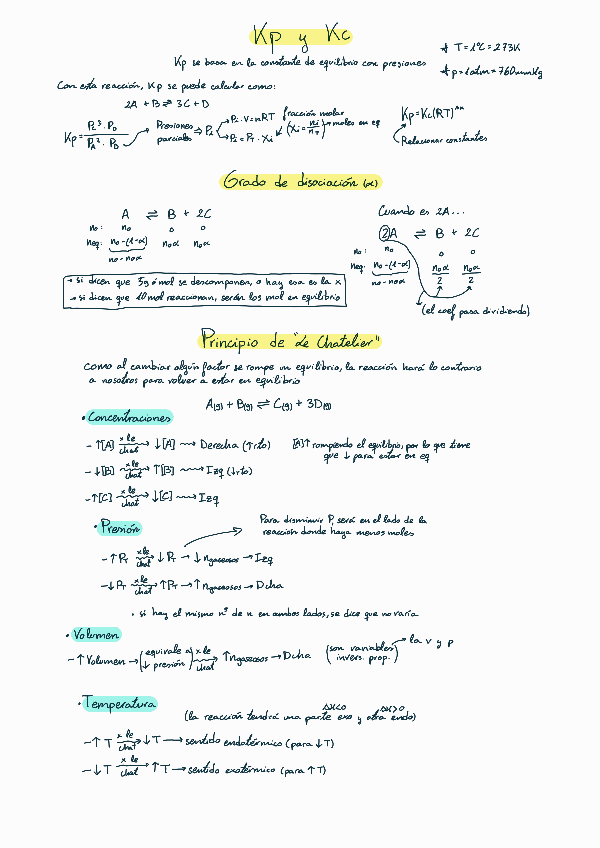 Kp y Kc
* T = 1ºC = 273K
Kp se basa en la constante de equilibrio con presiones
* p = 1atm = 760mmHg
Con esta reacción, Kp se puede calcular como:
2A + B ⇌ 3C + D
Kp = Pc³ · PD / PA² · PB → Presiones parciales ⇒ Pi
Pi · V = nRT
Pi = PT · Xi
fracción molar
(Xi = ni / nT) → moles en eq
Kp = Kc(RT)^Δn
Relacionar constantes
Grado de disociación (α)
A ⇌ B + 2C
no: no 0 0
neq: no-(1-α) noα noα
no - noα
→ si dicen que 5g ó mol se descomponen, o hay esa es la x
→ si dicen que 10 mol reaccionan, serán los mol en equilibrio
Cuando es 2A...
2A ⇌ B + 2C
no: no 0 0
neq: no-(1-α) noα/2 noα/2
no - noα
(el coef pasa dividiendo)
Principio de "Le Chatelier"
como al cambiar algún factor se rompe un equilibrio, la reacción hará lo contrario
a nosotros para volver a estar en equilibrio
A(g) + B(g) ⇌ C(g) + 3D(g)
• Concentraciones
- ↑[A] x le chat → ↓[A] → Derecha (↑rto)
[A]↑ rompiendo el equilibrio, por lo que tiene
que ↓ para estar en eq
- ↓[B] x le chat → ↑[B] → Izq (↓rto)
- ↑[C] x le chat → ↓[C] → Izq
• Presión
Para disminuir P, será en el lado de la
reacción donde haya menos moles
- ↑ PT x le chat → ↓ PT → ↓ ngaseosos → Izq
- ↓ PT x le chat → ↑ PT → ↑ ngaseosos → Dcha
• si hay el mismo nº de n en ambos lados, se dice que no varía
• Volumen
- ↑ Volumen → (equivale a ↓ presión) x le chat → ↑ ngaseosos → Dcha
(son variables invers. prop.) → la v y p
• Temperatura
ΔH<0 ΔH>0
(la reacción tendrá una parte exo y otra endo)
- ↑ T x le chat → ↓ T → sentido endotérmico (para ↓ T)
- ↓ T x le chat → ↑ T → sentido exotérmico (para ↑ T)